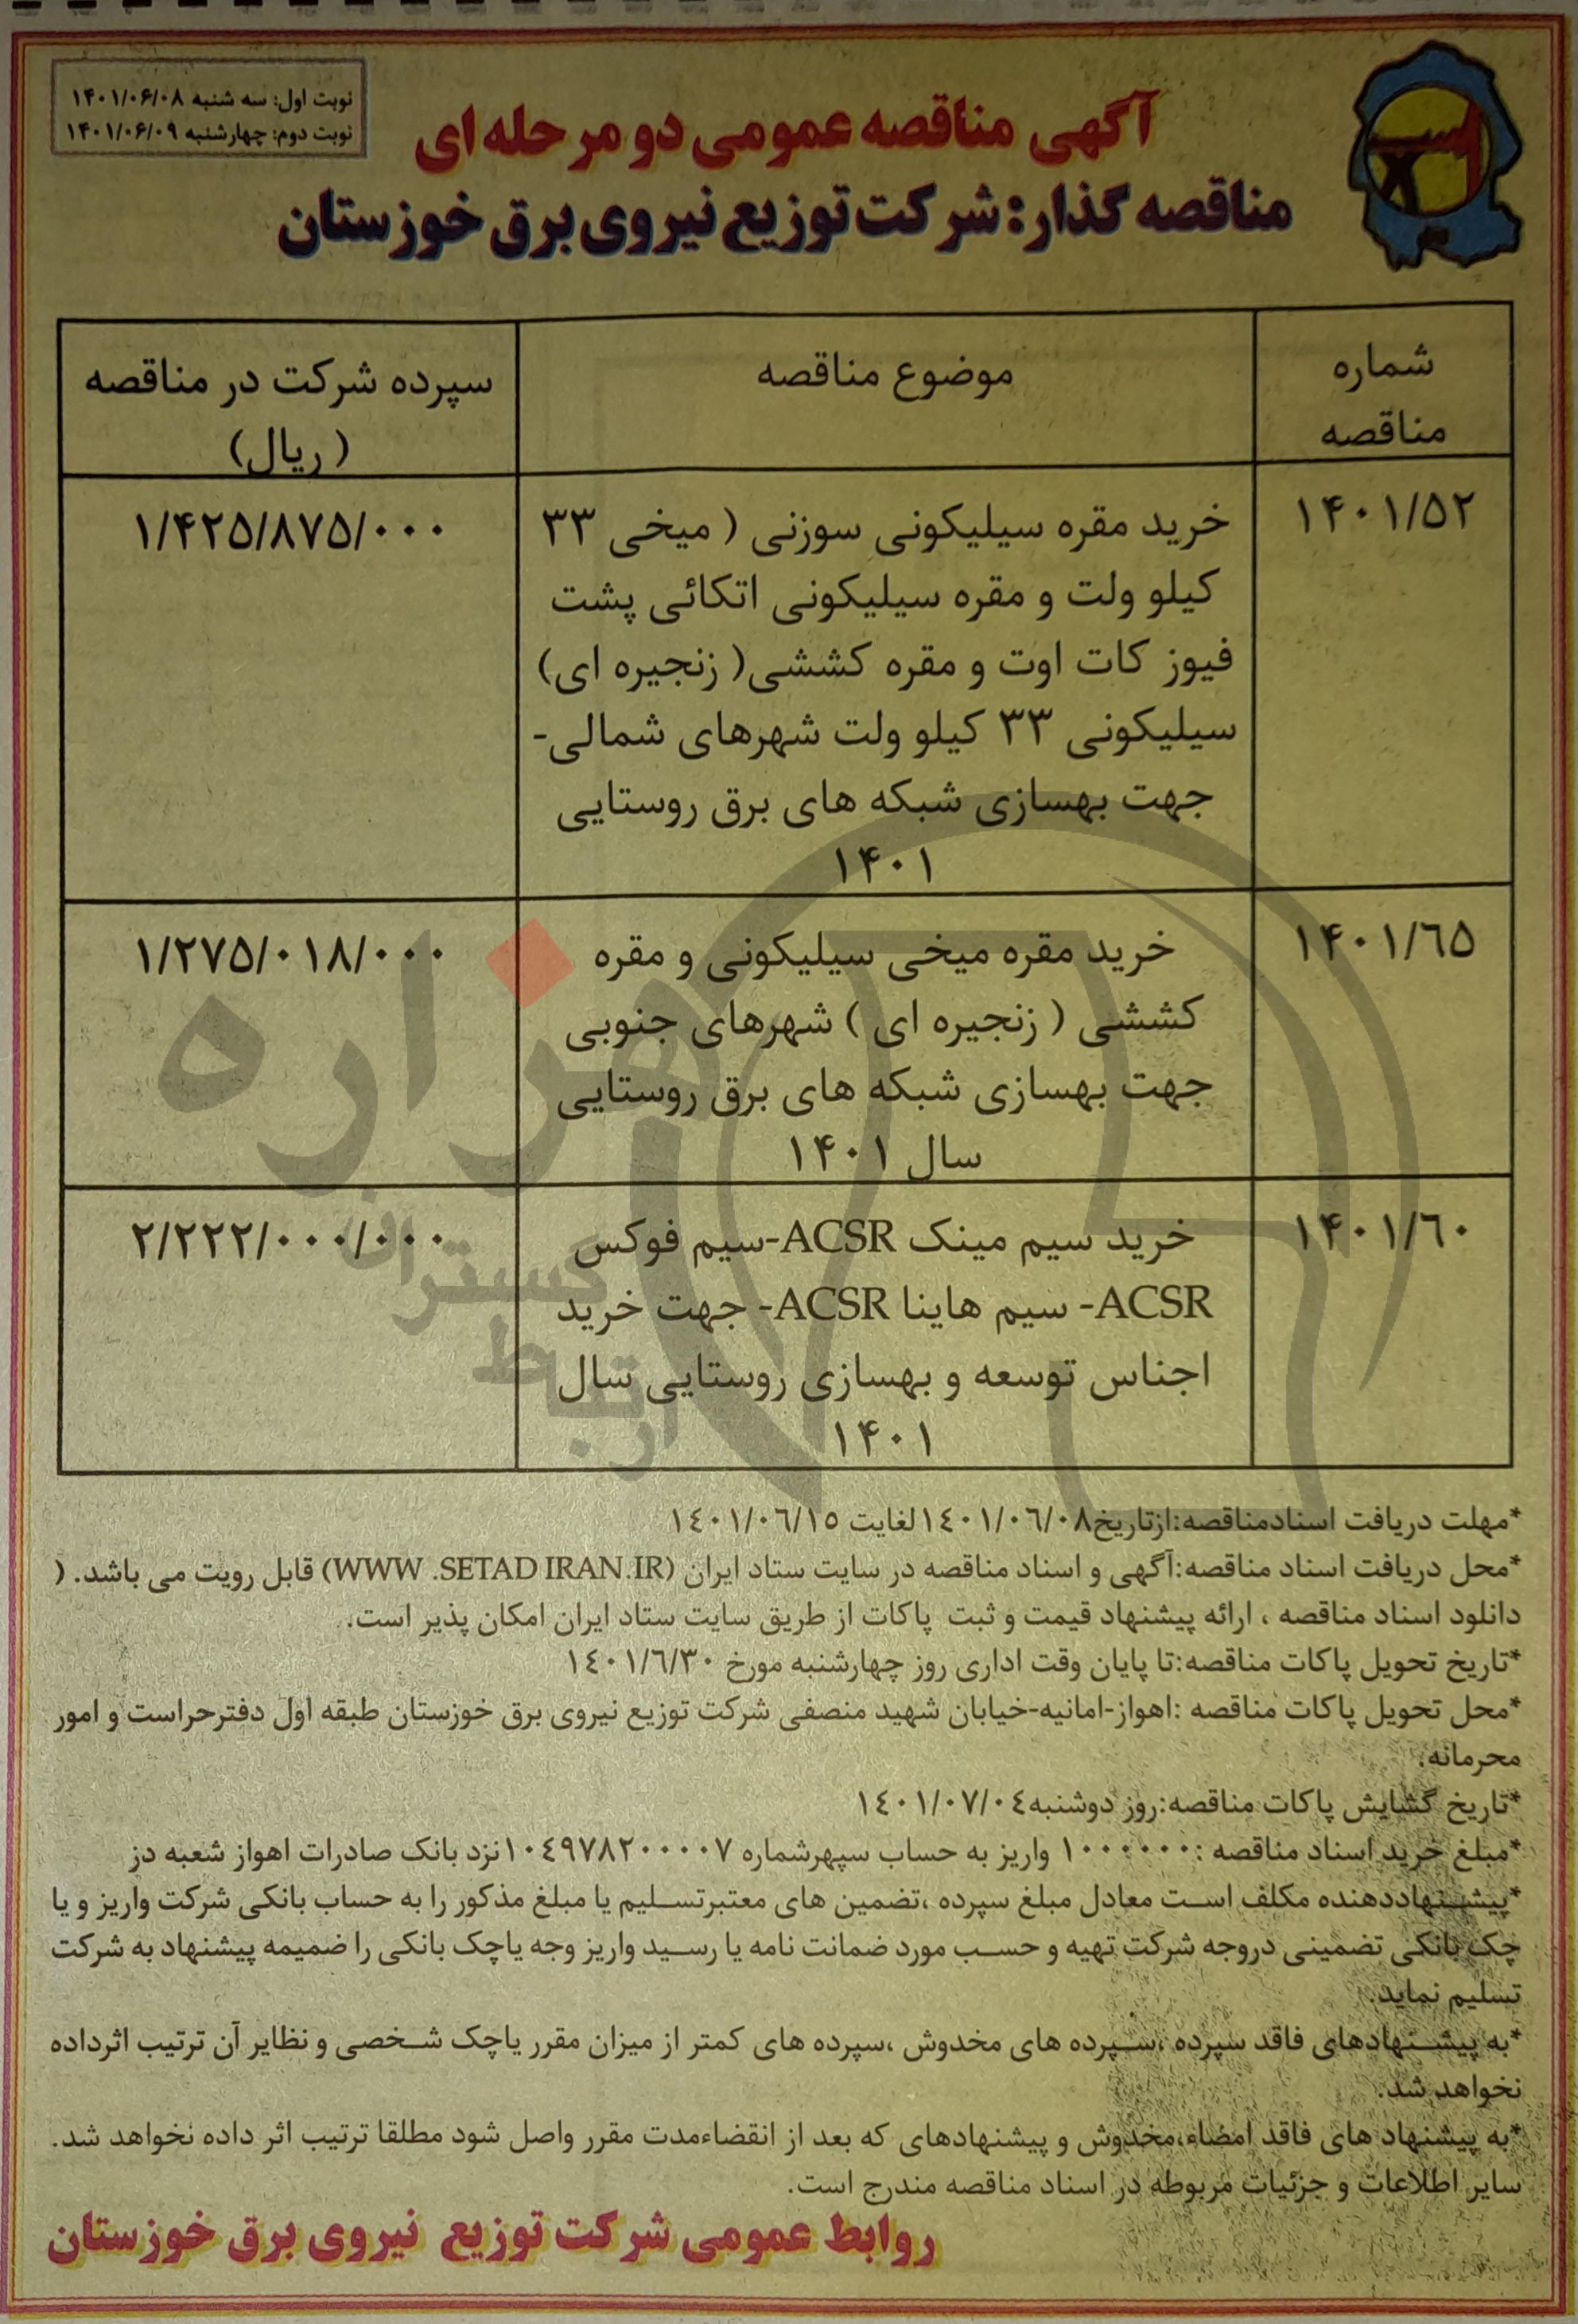 نوبت اول: سه شنبه ۱۴۰۱/۰۶/۰۸
نوبت دوم: چهارشنبه ۱۴۰۱/۰۶/۰۹
آگهی مناقصه عمومی دو مرحله ای
مناقصه گذار: شرکت توزیع نیروی برق خوزستان
شماره
مناقصه
موضوع مناقصه
سپرده شرکت در مناقصه
( ریال)
۱۴۰۱/۵۲
خرید مقره سیلیکونی سوزنی ( میخی ۳۳
کیلو ولت و مقره سیلیکونی اتکائی پشت
فیوز کات اوت و مقره کششی( زنجیره ای)
سیلیکونی ۳۳ کیلو ولت شهرهای شمالی-
جهت بهسازی شبکه های برق روستایی
۱۴۰۱
۱/۴۲۵/۸۷۵/۰۰۰
۱۴۰۱/٦۵
خرید مقره میخی سیلیکونی و مقره
کششی ( زنجیره ای ) شهرهای جنوبی
جهت بهسازی شبکه های برق روستایی
سال ۱۴۰۱
۱/۲۷۵/۰۱۸/۰۰۰
۱۴۰۱/٦۰
خرید سیم مینک ACSR-سیم فوکس
ACSR- سیم هاینا ACSR- جهت خرید
اجناس توسعه و بهسازی روستایی سال
۱۴۰۱
۲/۲۲۲/۰۰۰/۰۰۰
هزاره
گستران
ارتباط
*مهلت دریافت اسنادمناقصه:ازتاریخ١٤٠١/٠٦/٠٨لغایت ١٤٠١/٠٦/١٥
*محل دریافت اسناد مناقصه:آگهی و اسناد مناقصه در سایت ستاد ایران (WWW .SETAD IRAN.IR) قابل رویت می باشد. (
دانلود اسناد مناقصه ، ارائه پیشنهاد قیمت و ثبت پاکات از طریق سایت ستاد ایران امکان پذیر است.
*تاریخ تحویل پاکات مناقصه:تا پایان وقت اداری روز چهارشنبه مورخ ١٤٠١/٦/٣٠
*محل تحویل پاکات مناقصه :اهواز-امانیه-خیابان شهید منصفی شرکت توزیع نیروی برق خوزستان طبقه اول دفترحراست و امور
محرمانه.
*تاریخ گشایش پاکات مناقصه:روز دوشنبه١٤٠١/٠٧/٠٤
*مبلغ خرید اسناد مناقصه :١٠٠٠٠٠٠ واریز به حساب سپهرشماره ١٠٤٩٧٨٢٠٠٠٠٧نزد بانک صادرات اهواز شعبه دز
*پیشنهاددهنده مکلف است معادل مبلغ سپرده ،تضمین های معتبرتسلیم یا مبلغ مذکور را به حساب بانکی شرکت واریز و یا
چک بانکی تضمینی دروجه شرکت تهیه و حسب مورد ضمانت نامه یا رسید واریز وجه یاچک بانکی را ضمیمه پیشنهاد به شرکت
تسلیم نماید.
*به پیشنهادهای فاقد سپرده ،سپرده های مخدوش ،سپرده های کمتر از میزان مقرر یاچک شخصی و نظایر آن ترتیب اثرداده
نخواهد شد.
*به پیشنهاد های فاقد امضاء،مخدوش و پیشنهادهای که بعد از انقضاءمدت مقرر واصل شود مطلقا ترتیب اثر داده نخواهد شد.
سایر اطلاعات و جزئیات مربوطه در اسناد مناقصه مندرج است.
روابط عمومی شرکت توزیع نیروی برق خوزستان